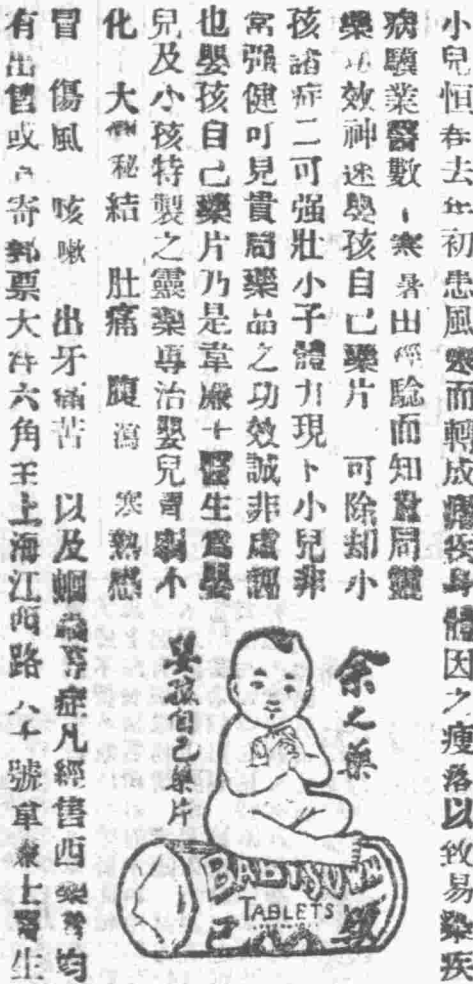 小兒恒春去年初患風寒而轉成瘧疾身體因之瘦落以致易染疾
病驗業醫數 寒暑由經驗而知貴局靈
藥 效神速嬰孩自己藥片 可除却小
孩諸症二可强壯小子體力現 小兒非
常强健可見貴局藥品之功效誠非虛謂
也嬰孩自己藥片乃是韋廉士醫生爲嬰
兒及小孩特製之靈藥專治嬰兒胃弱不
化 大 秘結 肚痛 腹瀉 寒熱 感
冒 傷風 咳嗽 出牙痛苦 以及蛔蟲等症凡經售西藥者均
有出售或 寄郵票大洋六角至上海江西路 號韋廉士醫生
余之藥
嬰孩自己藥片
BABY'S OWN
TABLETS
己